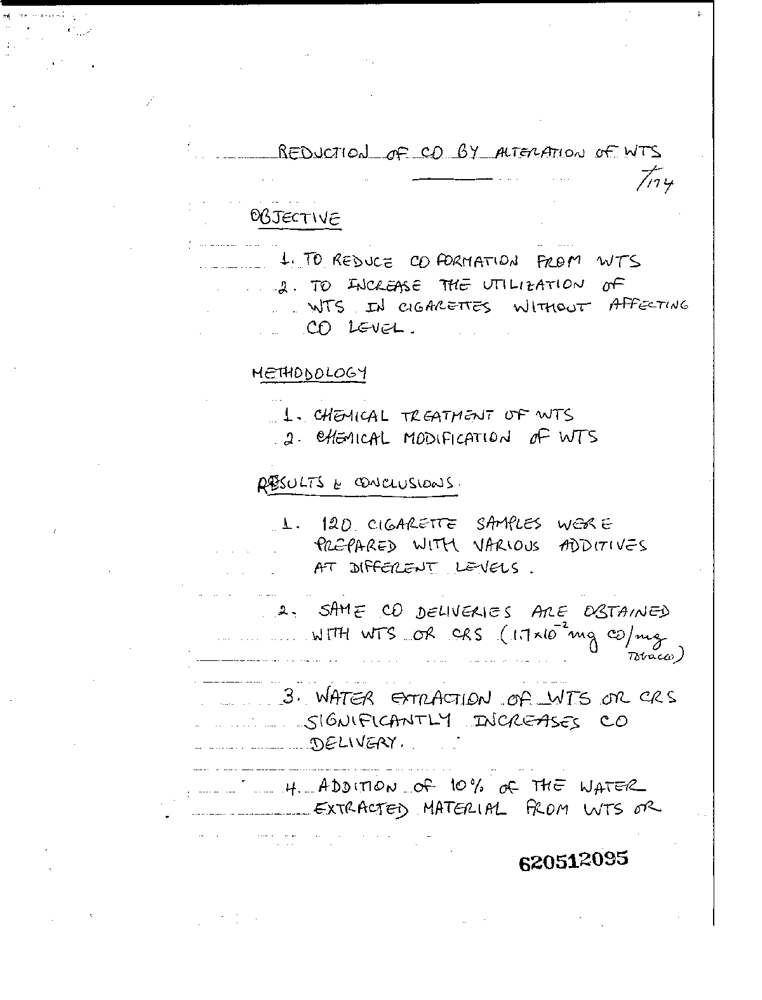 REDUCTION OF CO BY ALTERATION OF WTS
/174
OBJECTIVE
1. TO REDUCE CO FORMATION FROM WTS
2. TO INCREASE THE UTILIZATION OF
WTS IN CIGARETTES WITHOUT AFFECTING
CO LEVEL.
METHODOLOGY
1. CHEMICAL TREATMENT OF WTS
2. CHEMICAL MODIFICATION OF WTS
RESULTS & CONCLUSIONS.
1. 120 CIGARETTE SAMPLES WERE
PREPARED WITH VARIOUS ADDITIVES
AT DIFFERENT LEVELS.
2. SAME CO DELIVERIES ARE OBTAINED
WITH WTS OR CRS (1.7x10⁻² mg CO/mg
Tobacco)
3. WATER EXTRACTION OF WTS OR CRS
SIGNIFICANTLY INCREASES CO
DELIVERY.
4. ADDITION OF 10% OF THE WATER
EXTRACTED MATERIAL FROM WTS OR
620512095